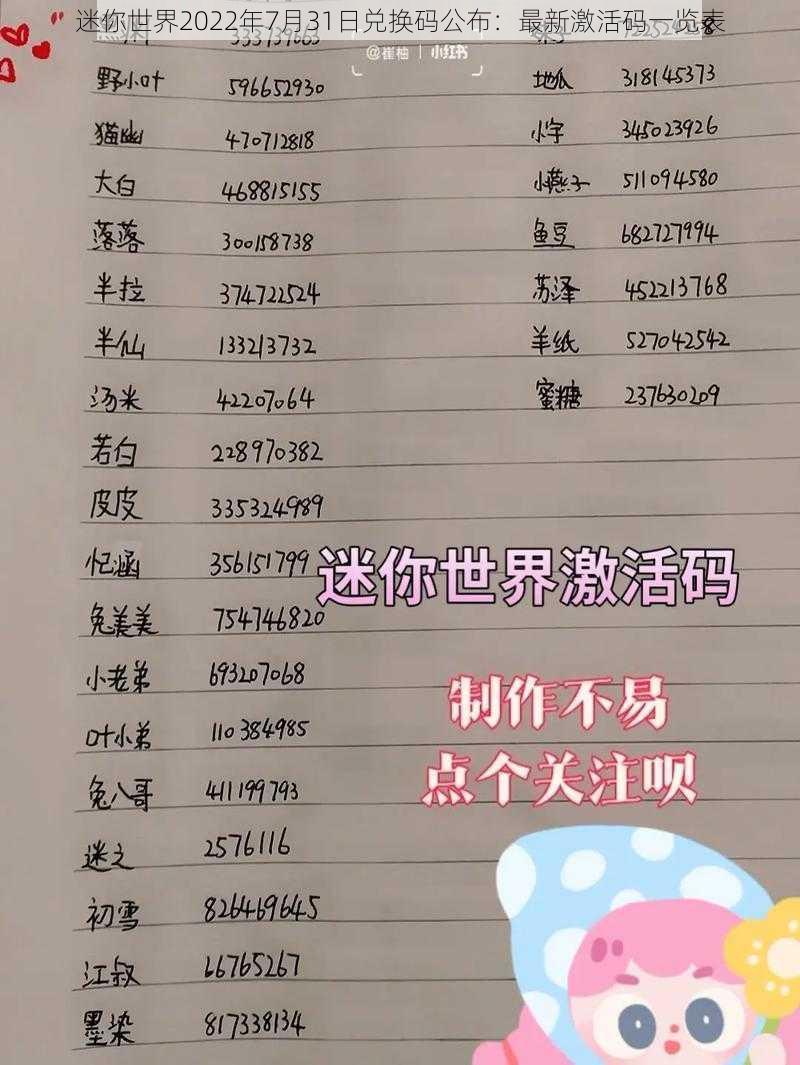 迷你世界2022年7月31日兑换码公布：最新激活码一览表
333739663
@崔柚 | 小红书
野小叶 596652930
地瓜 318145373
猫幽 470712818
小字 345023926
大白 468815155
小燕子 511094580
落落 300158738
鱼豆 682727994
半拉 374722524
苏泽 452213768
半仙 133213732
羊纸 527042542
汤米 42207064
蜜糖 237630209
若白 228970382
皮皮 335324989
忆涵 356151799
迷你世界激活码
兔美美 754746820
小老弟 693207068
制作不易
叶小弟 110384985
点个关注呗
兔八哥 411199793
迷之 2576116
初雪 826469645
江叔 66765267
墨染 817338134